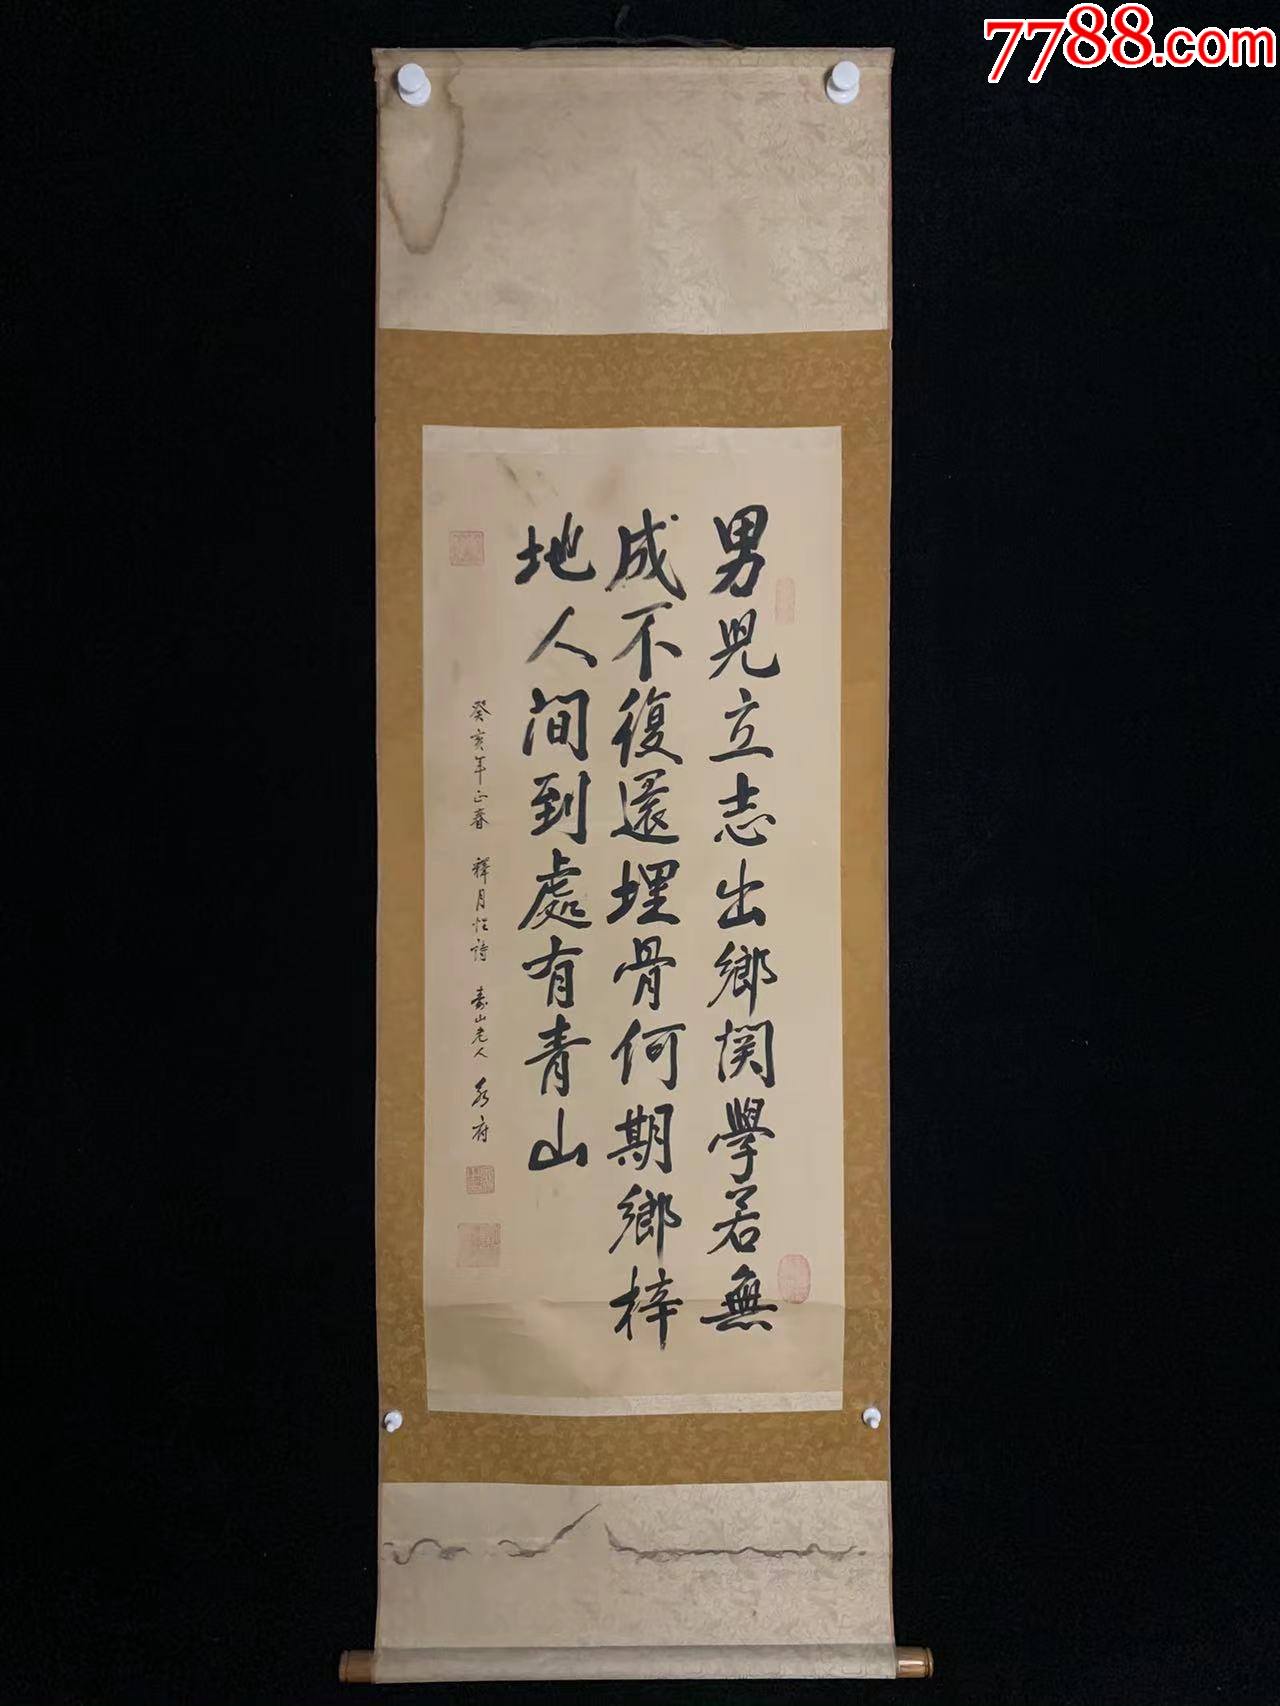 7788.com
男児立志出鄉関學若無
成不復還埋骨何期鄉梓
地人间到處有青山
癸亥年正春 釋月性詩 壽山老人